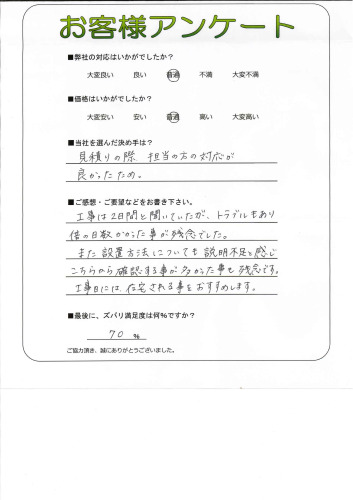 お客様アンケート
■弊社の対応はいかがでしたか?
大変良い 良い 普通 不満 大変不満
■価格はいかがでしたか?
大変安い 安い 普通 高い 大変高い
■当社を選んだ決め手は?
見積りの際、担当の方の対応が
良かったため。
■ご感想・ご要望などをお書き下さい。
工事は2日間と聞いていたが、トラブルもあり
倍の日数かかった事が残念でした。
また設置方法についても説明不足と感じ
こちらから確認する事が多かった事も残念です。
工事日には、在宅される事をおすすめします。
■最後に、ズバリ満足度は何%ですか?
70 %
ご協力頂き、誠にありがとうございました。